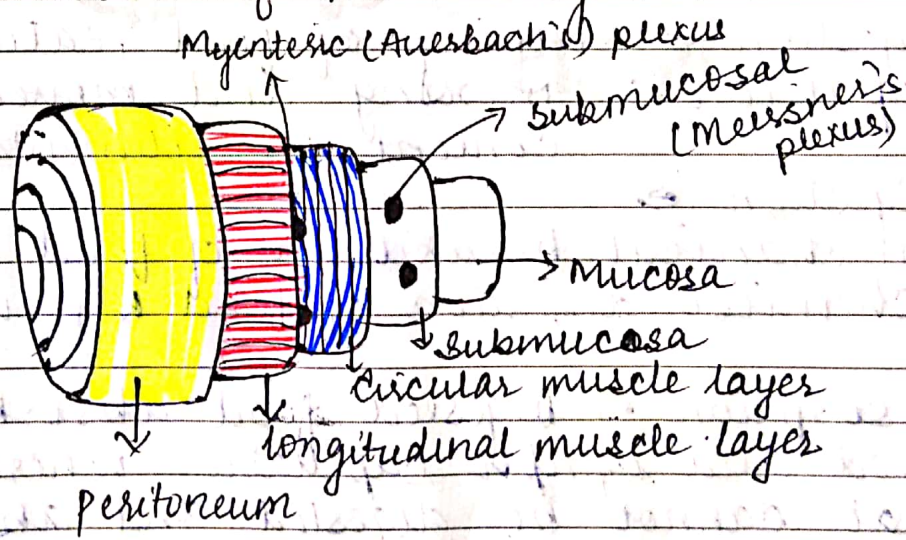 Myenteric (Auerbach's) plexus
submucosal
(Meissner's
plexus)
Mucosa
submucosa
circular muscle layer
longitudinal muscle layer
peritoneum